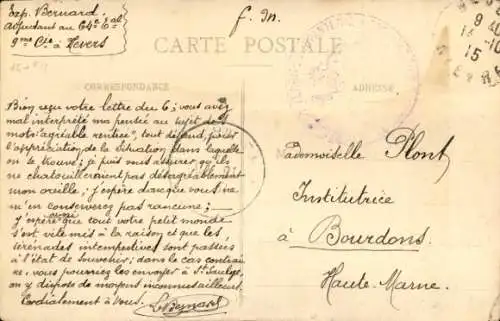 Exp. Bernard,
Adjudant au 64e Tal
9me Cie à Nevers
f. m.
CARTE POSTALE
CORRESPONDANCE
ADRESSE
15
Bien reçu votre lettre du 6; vous avez
mal interprêté ma pensée au sujet des
mots: "agréable rentrée", tout dépend, juste
l'appréciation de la situation dans laquelle
on se trouve; je puis vous assurer qu'ils
ne chatouilleraient pas désagréablement
mon oreille; j'espère donc que vous ne
m'en conserverez pas rancune;
j'espère aussi que tout votre petit monde
s'est vite mis à la raison et que les
sérénades intempestives sont passées
à l'état de souvenir; dans le cas contrai
re, vous pourriez les envoyer à St Saulge,
on y dispose de moyens inconnus ailleurs.
Cordialement à Vous. L. Bernard
Mademoiselle Plont
Institutrice
à Bourdons.
Haute-Marne.